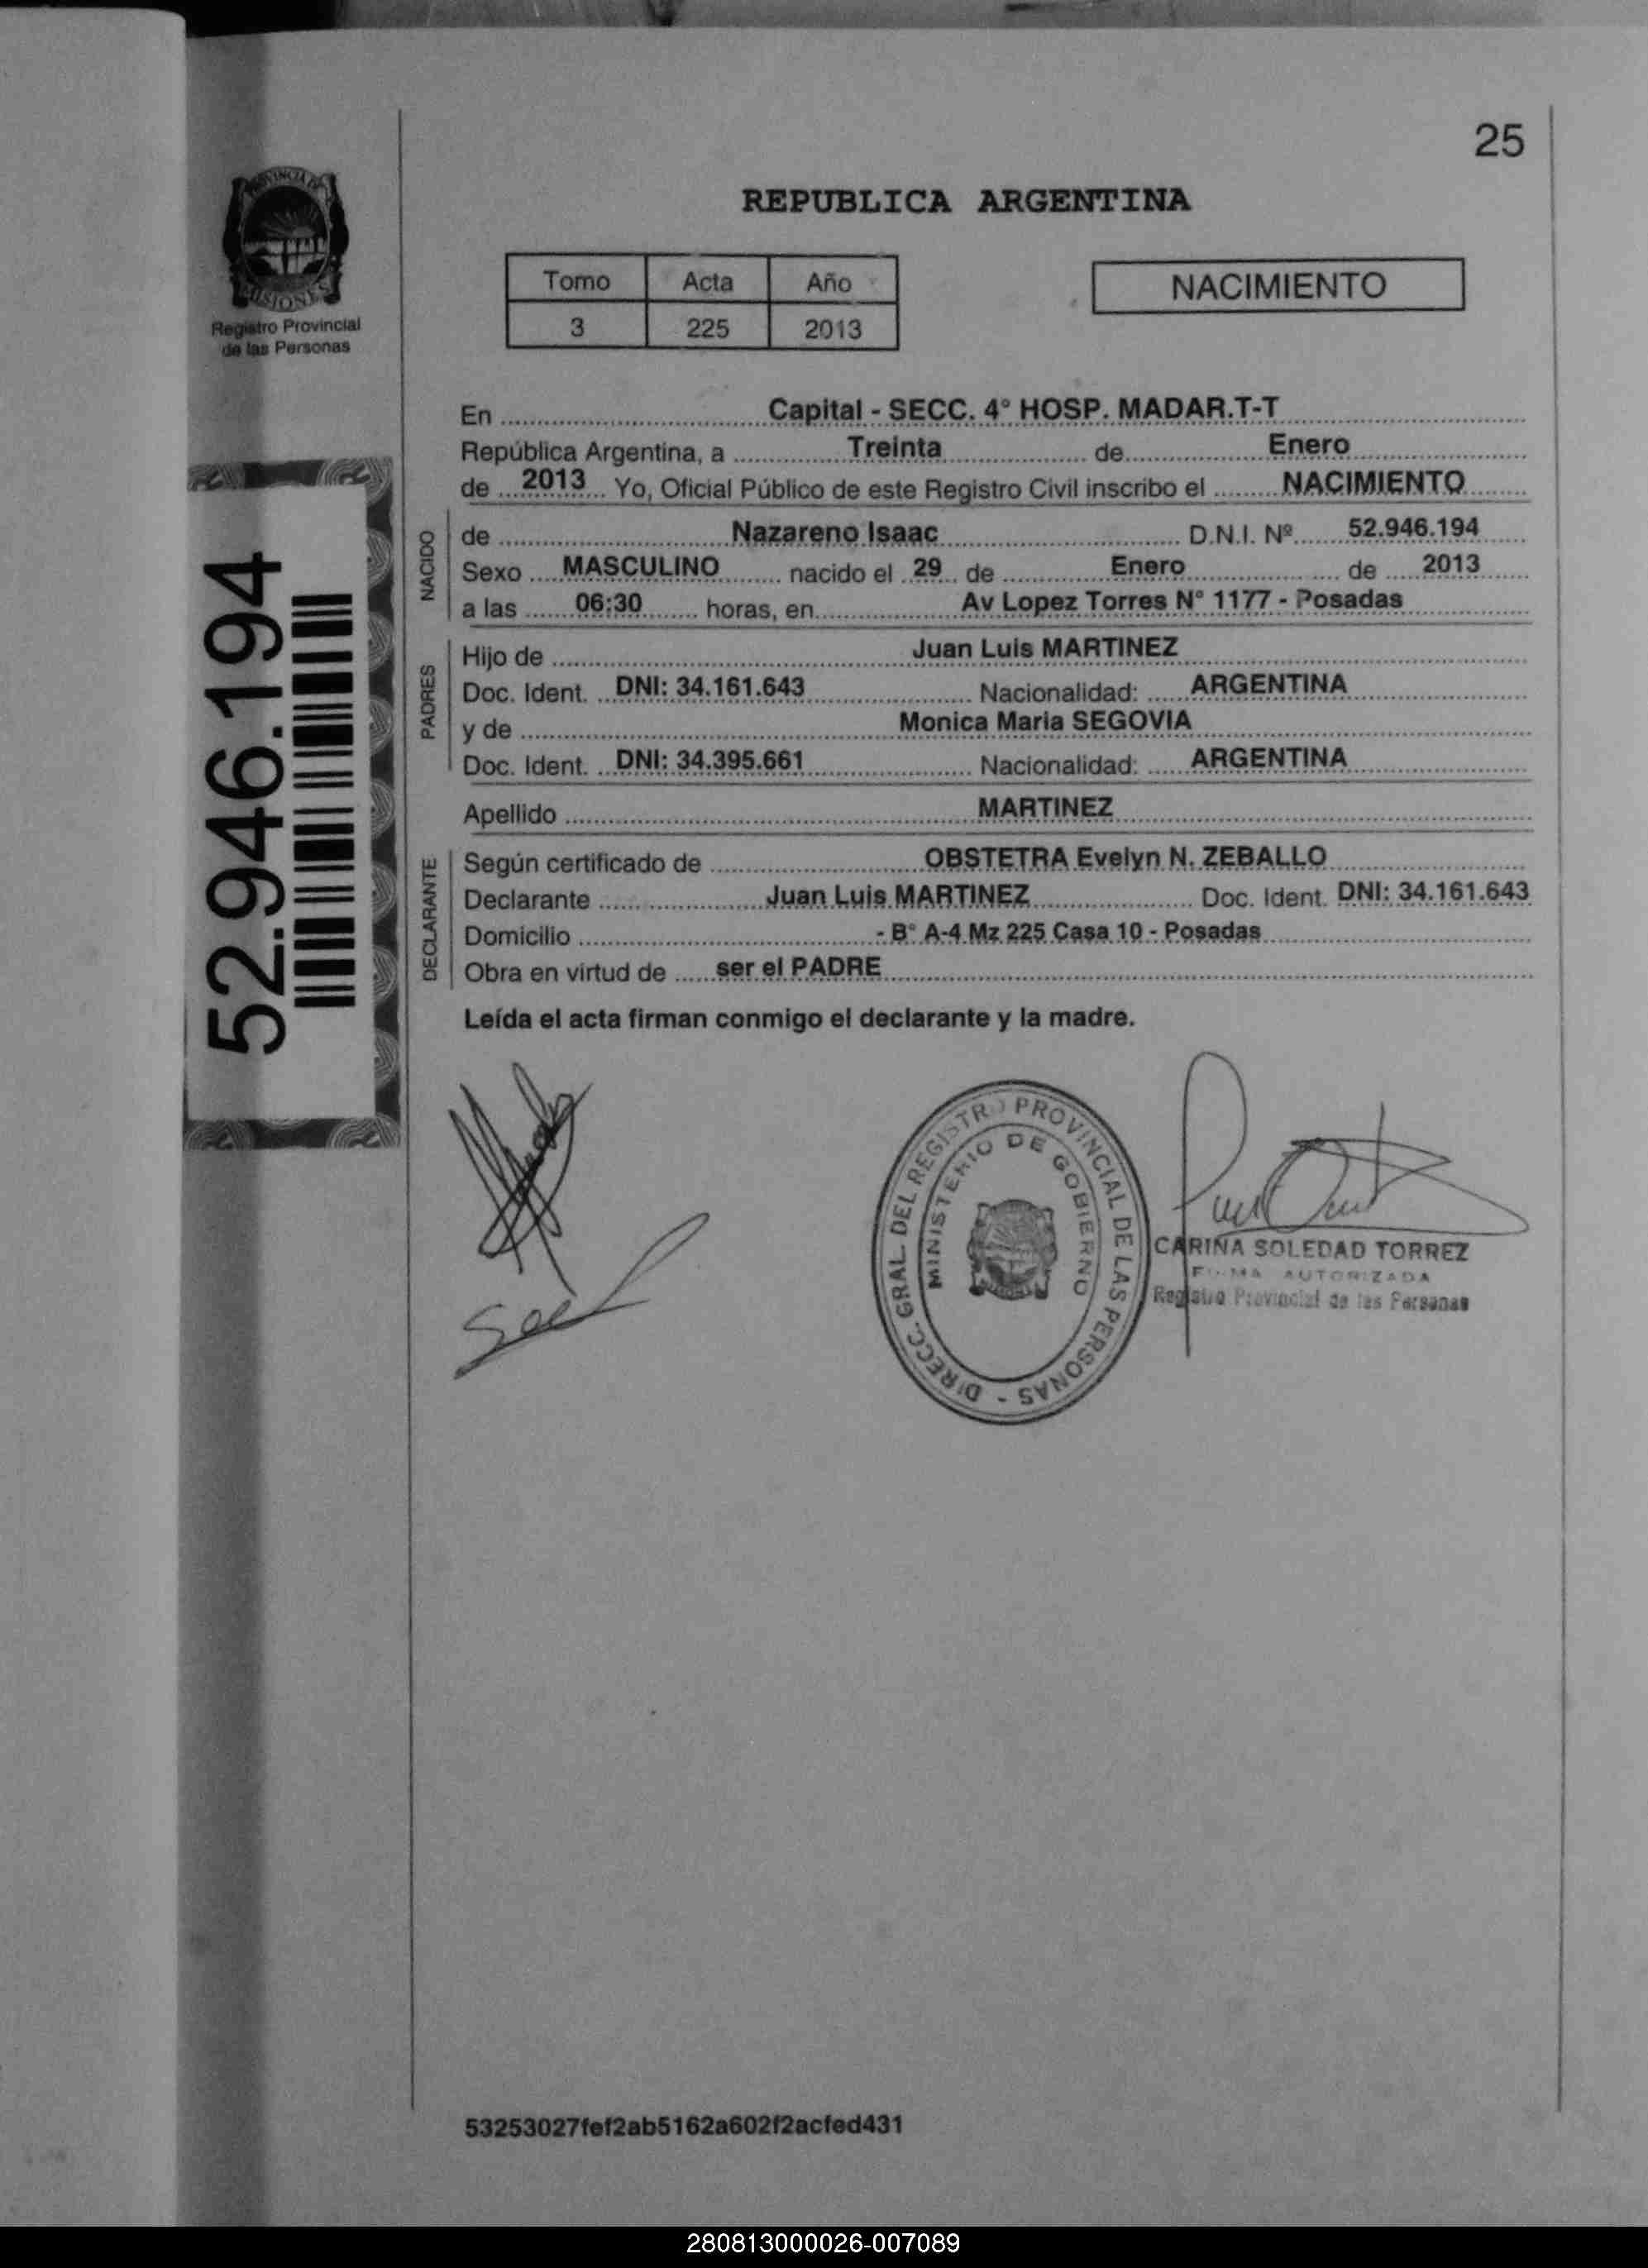 25
PROVINCIA DE
MISIONES
Registro Provincial
de las Personas
REPUBLICA ARGENTINA
Tomo Acta Año
3 225 2013
NACIMIENTO
En Capital - SECC. 4° HOSP. MADAR.T-T
República Argentina, a Treinta de Enero
de 2013 Yo, Oficial Público de este Registro Civil inscribo el NACIMIENTO
NACIDO
de Nazareno Isaac D.N.I. Nº 52.946.194
Sexo MASCULINO nacido el 29 de Enero de 2013
a las 06:30 horas, en Av Lopez Torres N° 1177 - Posadas
PADRES
Hijo de Juan Luis MARTINEZ
Doc. Ident. DNI: 34.161.643 Nacionalidad: ARGENTINA
y de Monica Maria SEGOVIA
Doc. Ident. DNI: 34.395.661 Nacionalidad: ARGENTINA
Apellido MARTINEZ
DECLARANTE
Según certificado de OBSTETRA Evelyn N. ZEBALLO
Declarante Juan Luis MARTINEZ Doc. Ident. DNI: 34.161.643
Domicilio - B° A-4 Mz 225 Casa 10 - Posadas
Obra en virtud de ser el PADRE
Leída el acta firman conmigo el declarante y la madre.
52.946.194
DIRECC. GRAL. DEL REGISTRO PROVINCIAL DE LAS PERSONAS -
MINISTERIO DE GOBIERNO
CARINA SOLEDAD TORREZ
FIRMA AUTORIZADA
Registro Provincial de las Personas
53253027fef2ab5162a602f2acfed431
280813000026-007089